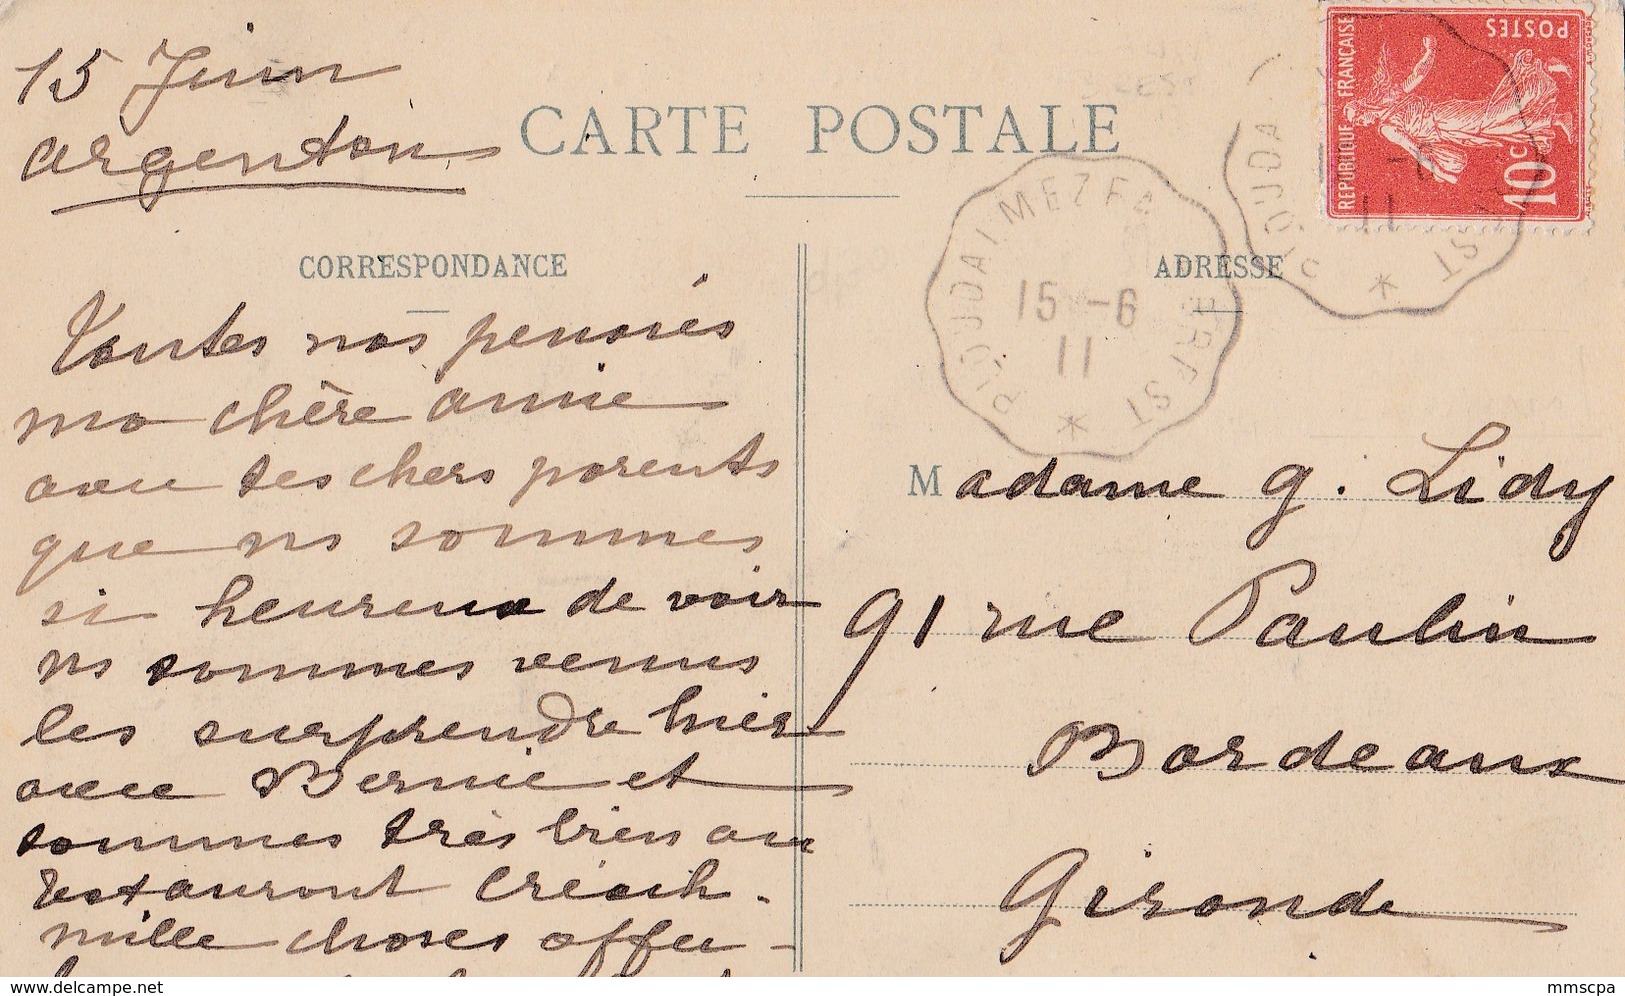 15 Juin
Argenton
CARTE POSTALE
REPUBLIQUE FRANÇAISE
POSTES
10c
CORRESPONDANCE
ADRESSE
PLOUDALMEZEA
BREST
15 -6
11
*
PLOUDA
ST
11
*
Toutes nos pensées
ma chère amie
avec tes chers parents
que ns sommes
si heureux de voir
ns sommes venus
les surprendre hier
avec et
sommes très bien au
restaurant
mille choses affec-
Madame G. Lidy
91 rue Paulin
Bordeaux
Gironde
www.delcampe.net
mmscpa